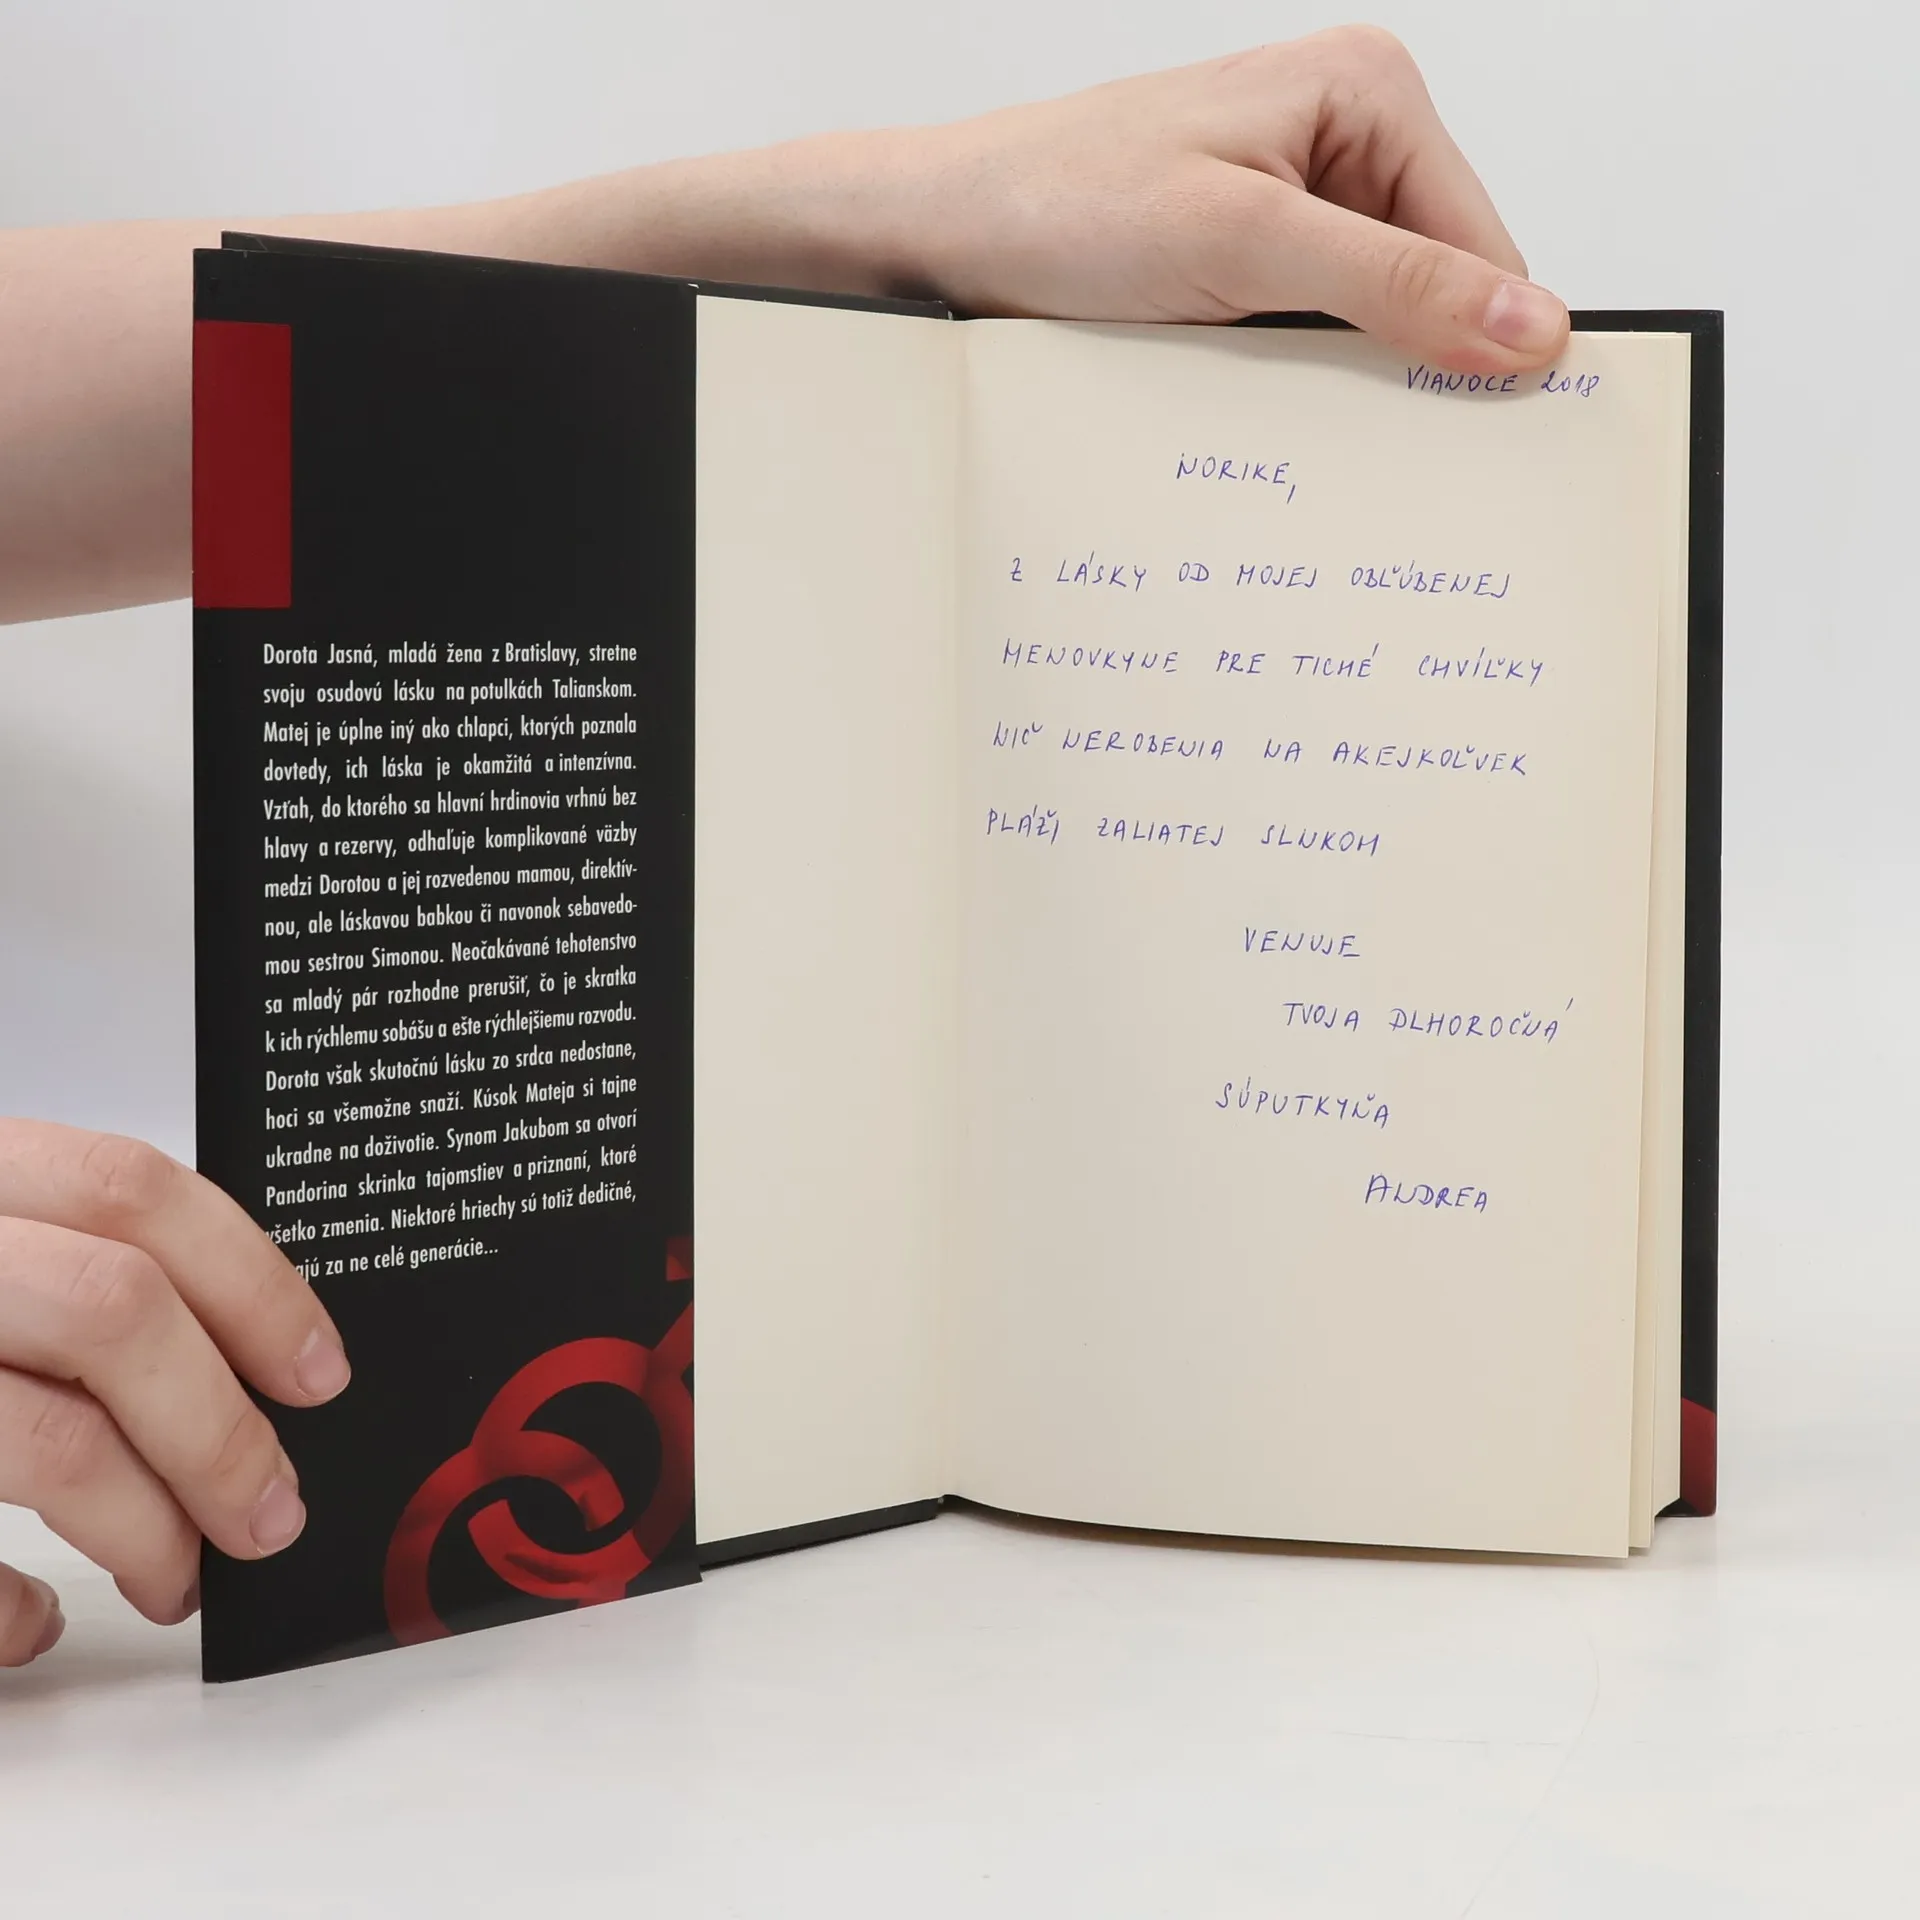 Dorota Jasná, mladá žena z Bratislavy, stretne
svoju osudovú lásku na potulkách Talianskom.
Matej je úplne iný ako chlapci, ktorých poznala
dovtedy, ich láska je okamžitá a intenzívna.
Vzťah, do ktorého sa hlavní hrdinovia vrhnú bez
hlavy a rezervy, odhaľuje komplikované väzby
medzi Dorotou a jej rozvedenou mamou, direktív-
nou, ale láskavou babkou či navonok sebavedo-
mou sestrou Simonou. Neočakávané tehotenstvo
sa mladý pár rozhodne prerušiť, čo je skratka
k ich rýchlemu sobášu a ešte rýchlejšiemu rozvodu.
Dorota však skutočnú lásku zo srdca nedostane,
hoci sa všemožne snaží. Kúsok Mateja si tajne
ukradne na doživotie. Synom Jakubom sa otvorí
Pandorina skrinka tajomstiev a priznaní, ktoré
všetko zmenia. Niektoré hriechy sú totiž dedičné,
za ne celé generácie...
VIANOCE 2018
NORIKE,
Z LÁSKY OD MOJEJ OBĽÚBENEJ
MENOVKYNE PRE TICHÉ CHVÍĽKY
NIČ NEROBENIA NA AKEJKOĽVEK
PLÁŽI ZALIATEJ SLNKOM
VENUJE
TVOJA DLHOROČNÁ
SÚPUTKYŇA
ANDREA